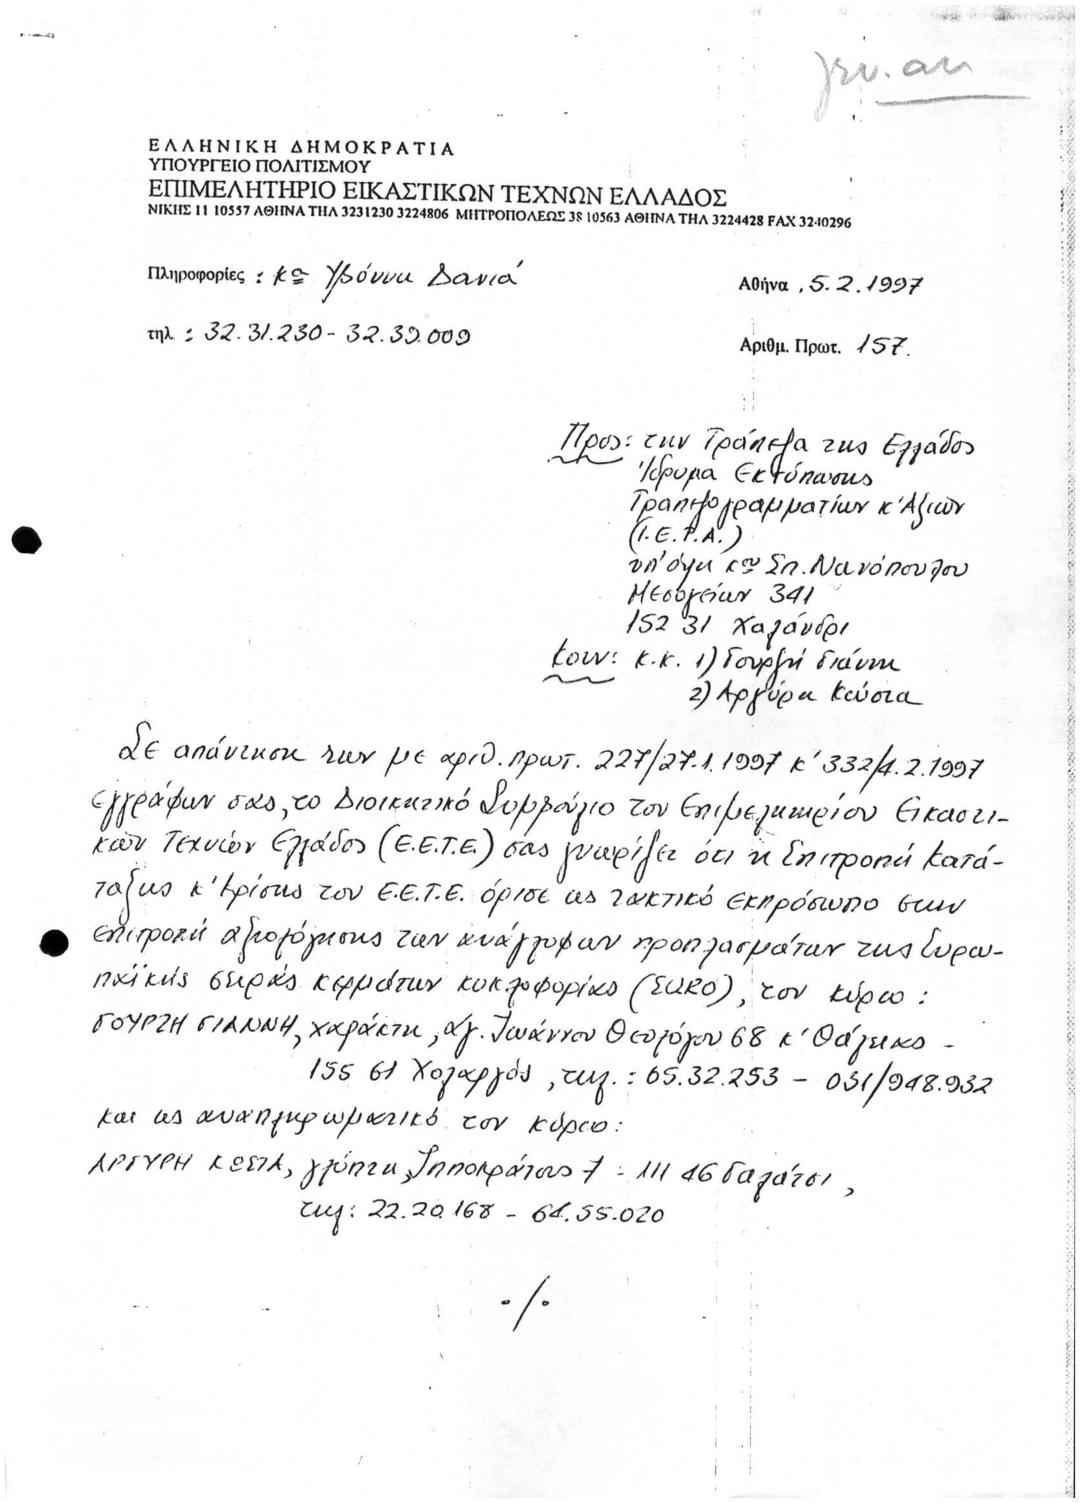 γεν. ακ
ΕΛΛΗΝΙΚΗ ΔΗΜΟΚΡΑΤΙΑ
ΥΠΟΥΡΓΕΙΟ ΠΟΛΙΤΙΣΜΟΥ
ΕΠΙΜΕΛΗΤΗΡΙΟ ΕΙΚΑΣΤΙΚΩΝ ΤΕΧΝΩΝ ΕΛΛΑΔΟΣ
ΝΙΚΗΣ 11 10557 ΑΘΗΝΑ ΤΗΛ 3231230 3224806 ΜΗΤΡΟΠΟΛΕΩΣ 38 10563 ΑΘΗΝΑ ΤΗΛ 3224428 FAX 3240296
Πληροφορίες : κα Υβόννη Δανιά
Αθήνα , 5.2.1997
τηλ : 32.31.230 - 32.39.009
Αριθμ. Πρωτ. 157.
Προς: την Τράπεζα της Ελλάδος
Ίδρυμα Εκτύπωσης
Τραπεζογραμματίων κ' Αξιών
(Ι.Ε.Τ.Α.)
υπ' όψη κου Σπ. Νανόπουλου
Μεσογείων 341
152 31 Χαλάνδρι
Κοιν: κ.κ. 1) Γουρζή Γιάννη
2) Αργύρη Κώστα
Σε απάντηση των με αριθ. πρωτ. 227/27.1.1997 κ' 332/4.2.1997
εγγράφων σας, το Διοικητικό Συμβούλιο του Επιμελητηρίου Εικαστι-
κών Τεχνών Ελλάδος (Ε.Ε.Τ.Ε.) σας γνωρίζει ότι η Επιτροπή Κατά-
ταξης κ' Κρίσης του Ε.Ε.Τ.Ε. όρισε ως τακτικό εκπρόσωπο στην
επιτροπή αξιολόγησης των ανάγλυφων προπλασμάτων της Ευρω-
παϊκής σειράς κερμάτων κυκλοφορίας (EURO), τον κύριο :
ΓΟΥΡΖΗ ΓΙΑΝΝΗ, χαράκτη, Αγ. Ιωάννου Θεολόγου 68 κ' Θάλειας -
155 61 Χολαργός, τηλ. : 65.32.253 - 031/948.932
και ως αναπληρωματικό τον κύριο :
ΑΡΓΥΡΗ ΚΩΣΤΑ, γλύπτη, Ιπποκράτους 7 - 111 46 Γαλάτσι,
τηλ: 22.20.168 - 64.55.020
./.